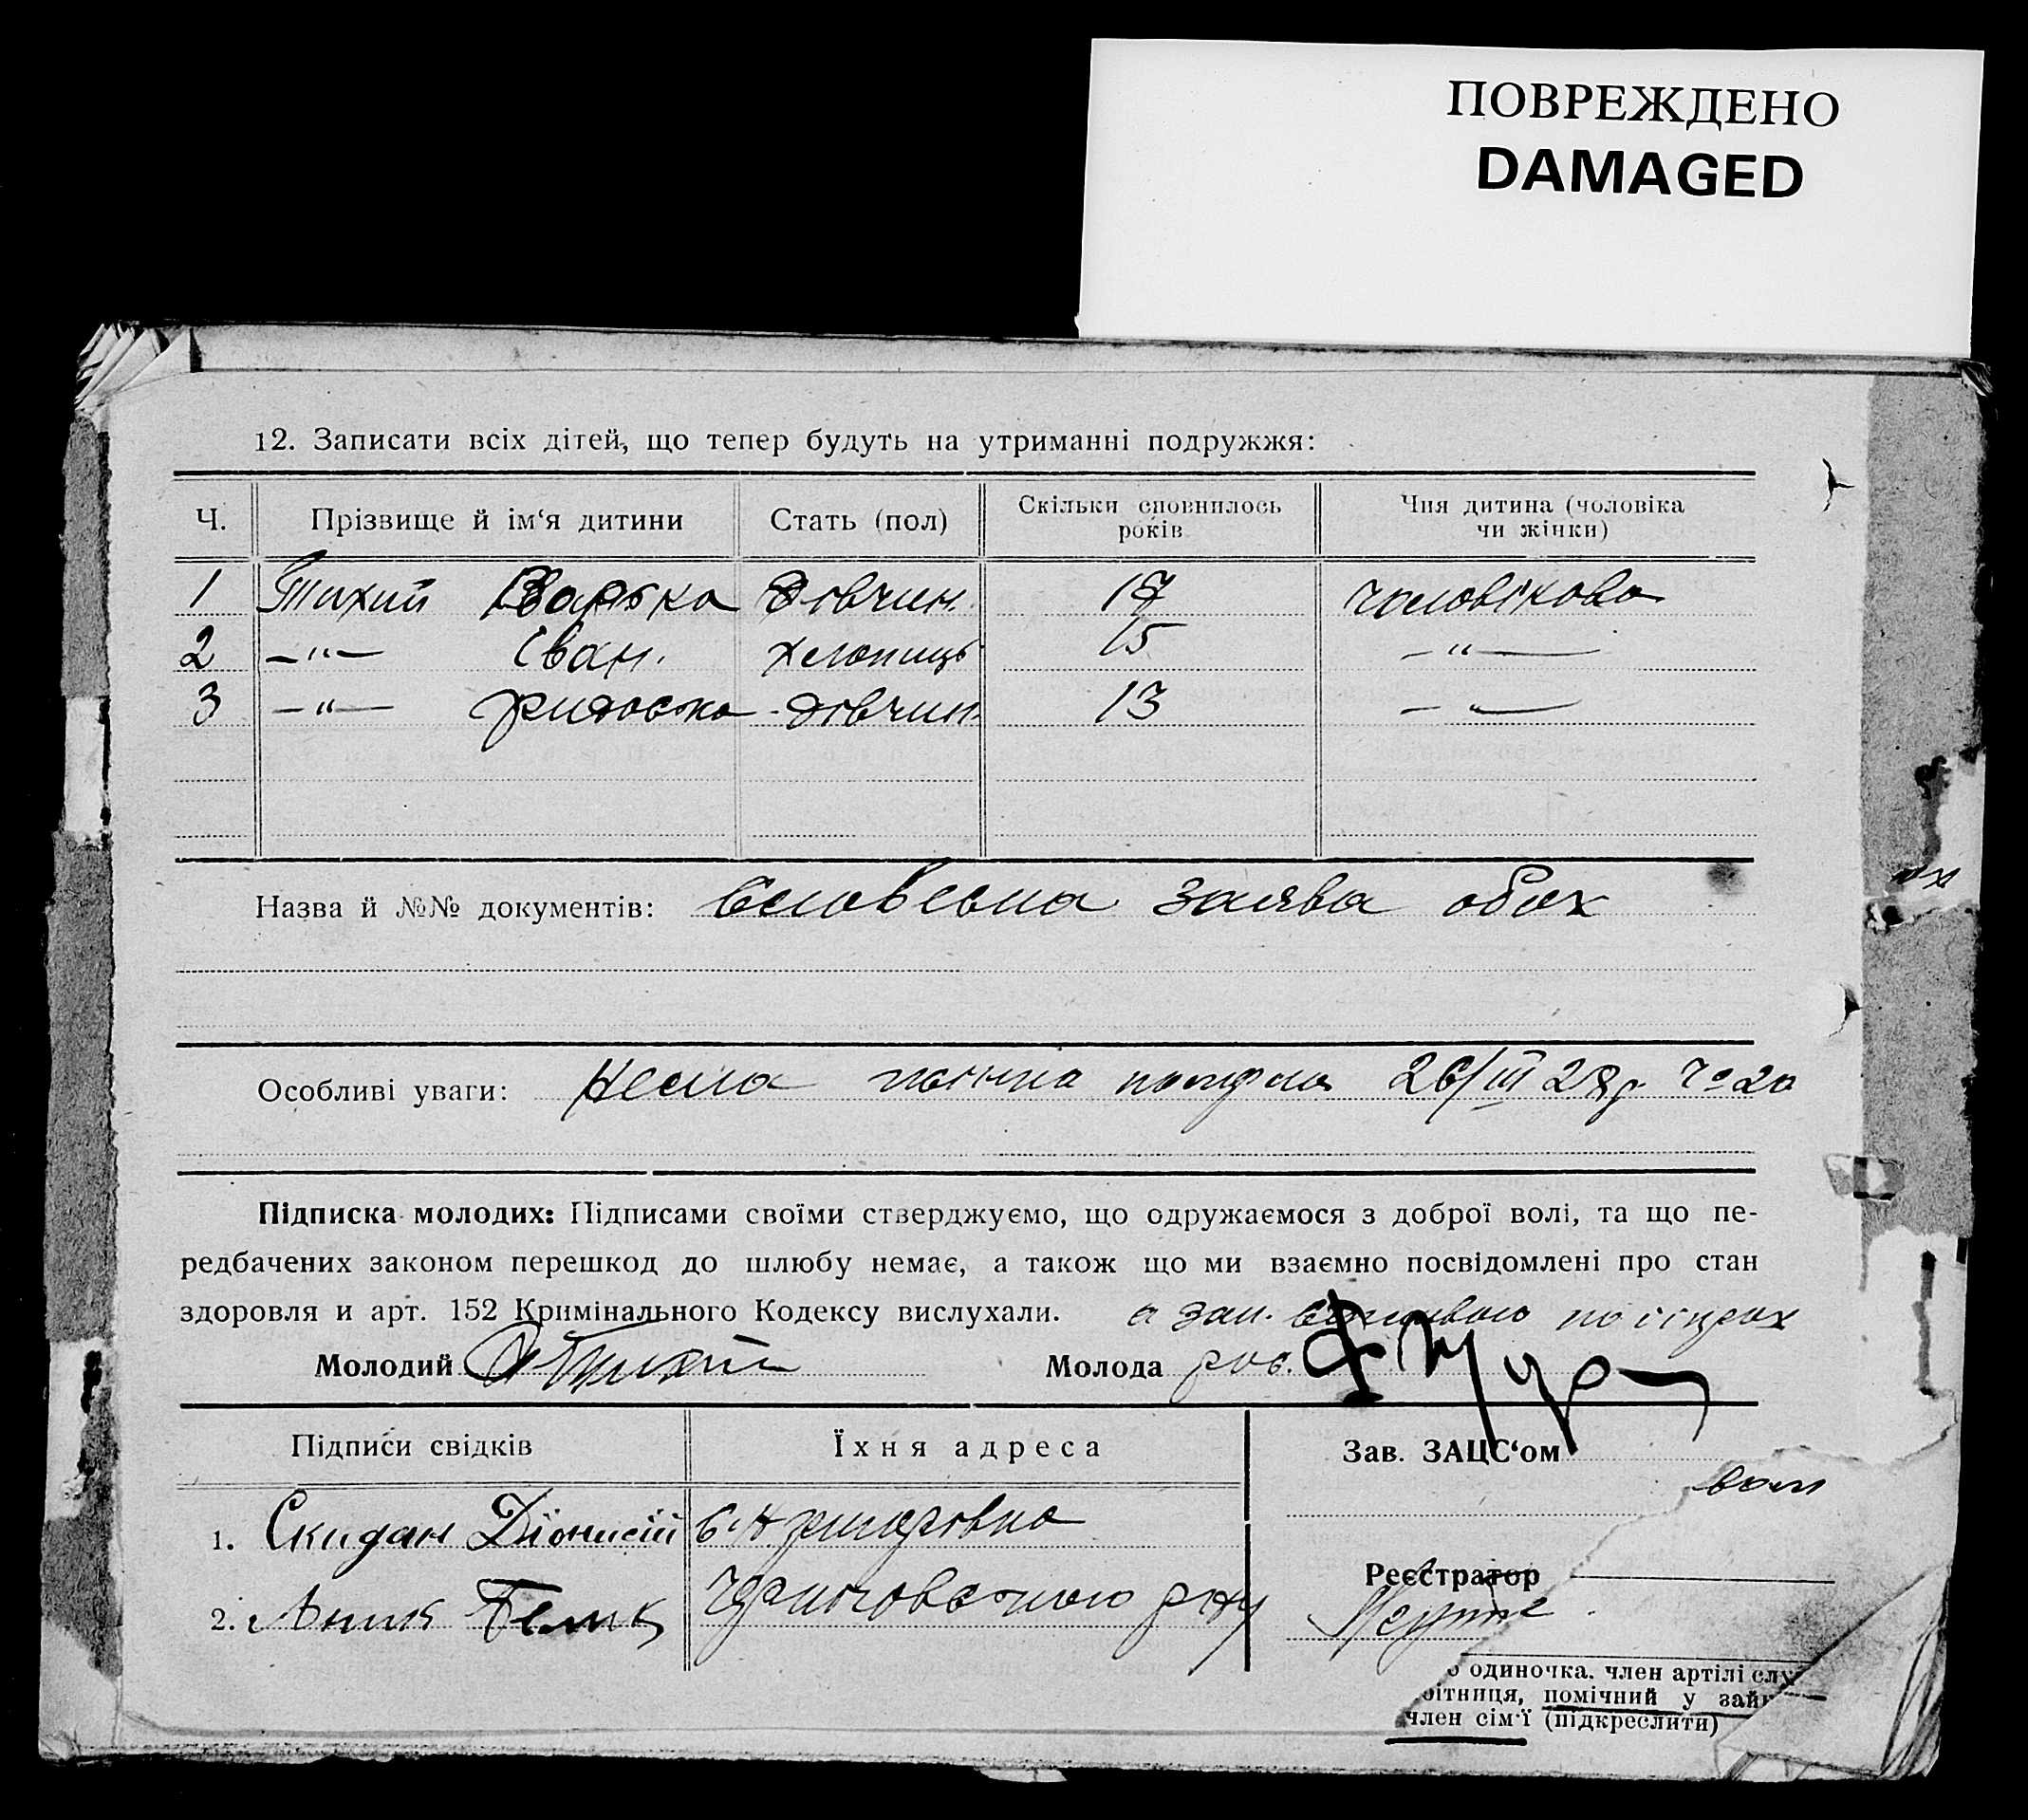 ПОВРЕЖДЕНО
DAMAGED
12. Записати всіх дітей, що тепер будуть на утриманні подружжя:
Ч. Прізвище й ім‘я дитини Стать (пол) Скільки сповнилось років Чия дитина (чоловіка чи жінки)
1 Тихий Варька Дівчин. 17 чоловікова
2 —"— Іван. хлопиць 15 —"—
3 —"— дівчин. 13 — —
Назва й №№ документів: Словесна заява обох
Особливі уваги: жінка 26/III 28р. чо 20
Підписка молодих: Підписами своїми стверджуємо, що одружаємося з доброї волі, та що пе-
редбачених законом перешкод до шлюбу немає, а також що ми взаємно посвідомлені про стан
здоровля и арт. 152 Кримінального Кодексу вислухали. а
Молодий Молода
Підписи свідків Їхня адреса Зав. ЗАЦС‘ом
1. Скидан Діонисій
Реєстратор
2.
о одиночка. член артілі слу
бітниця, помічний у зай
член сім‘ї (підкреслити)